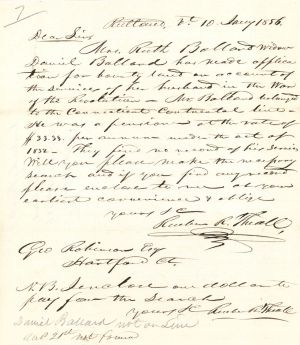 Rutland, Vt. 10 Jany 1856
Dear Sir
Mrs. Ruth Ballard Widow
Daniel Ballard has made applica
tion for bounty land on account of
the services of her husband in the War
of the Revolution. Mr Ballard belonged
to the Connecticut Continental line
He was a pensioner at the rate of
$33.33. per annum under the act of
1832 - They find no record of his service
Will you please make the necessary
search and if you find any record
please enclose to me at your
earliest convenience & oblige
yours &c
Reuben R. Thrall
Geo Robinson Esq
Hartford Ct.
N.B. I enclose one dollar to
pay for the search
yours &c Reuben R. Thrall
Daniel Ballard not on Line
not found